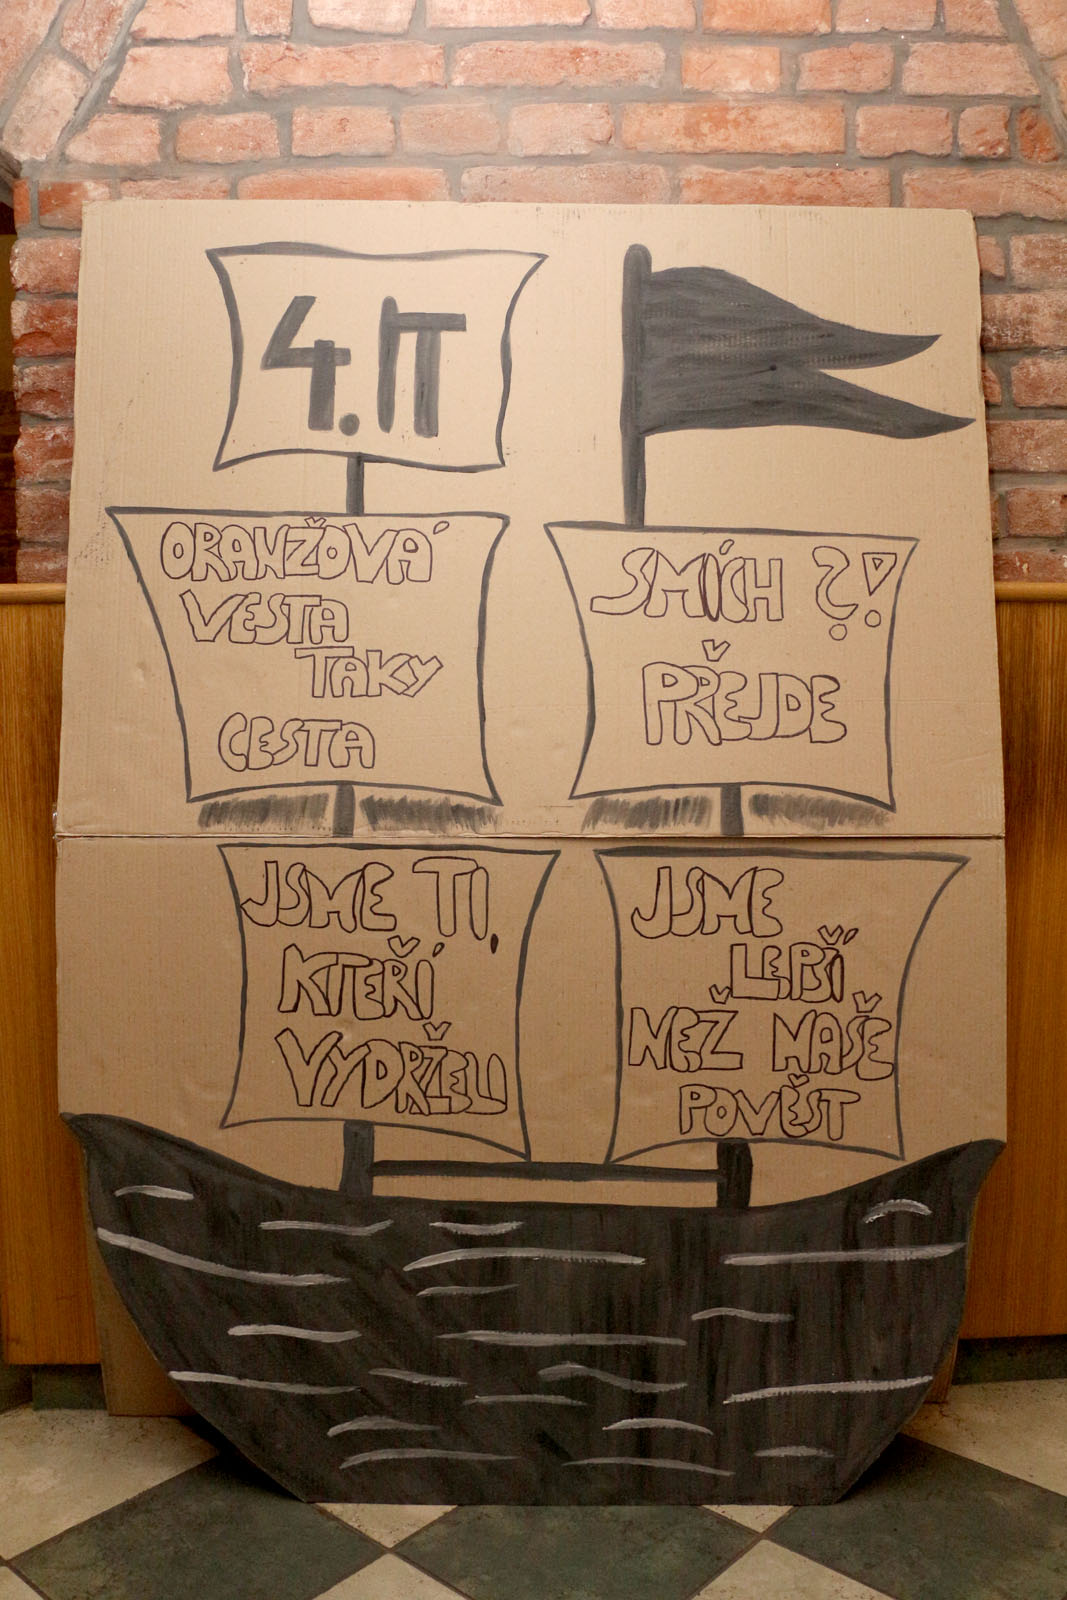 4.IT
ORANŽOVÁ
VESTA
TAKY
CESTA
SMÍCH ?!
PŘEJDE
JSME TI,
KTEŘÍ
VYDRŽELI
JSME
LEPŠÍ
NEŽ NAŠE
POVĚST